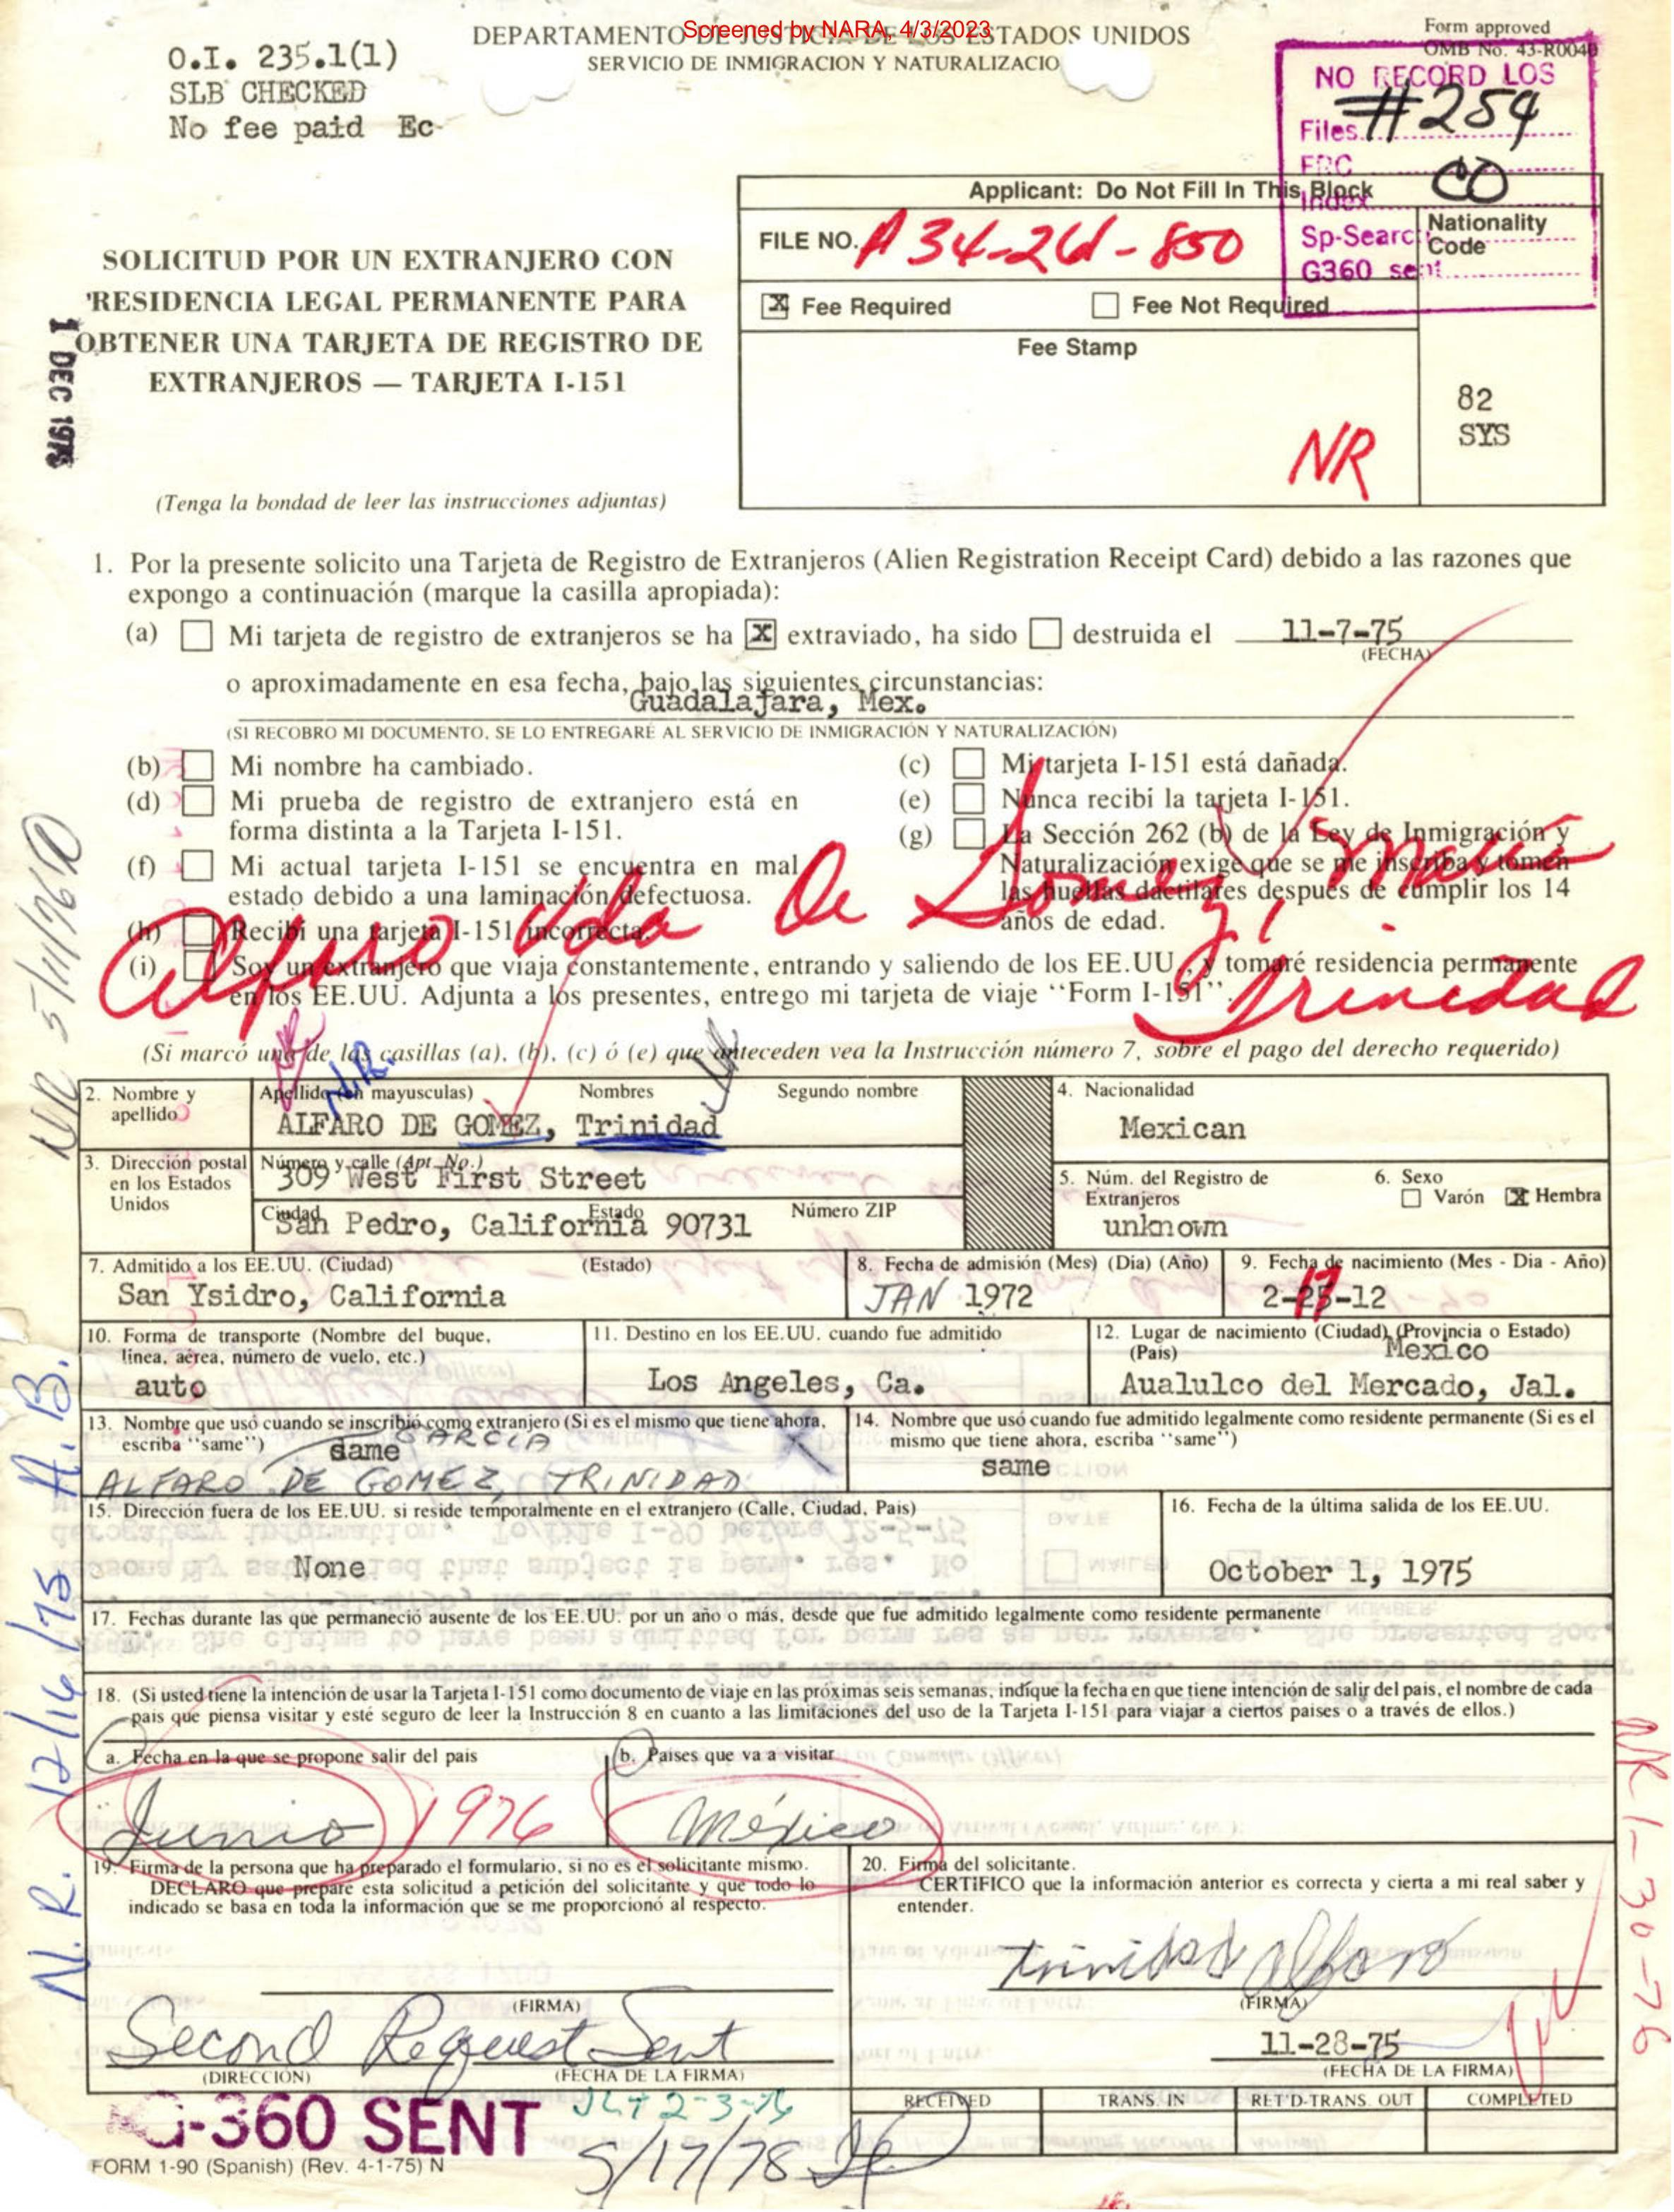 Screened by NARA, 4/3/2023
O.I. 235.1(1)
SLB CHECKED
No fee paid Ec
DEPARTAMENTO DE JUSTICIA DE LOS ESTADOS UNIDOS
SERVICIO DE INMIGRACION Y NATURALIZACIO
Form approved
OMB No. 43-R0040
NO RECORD LOS
#254
Files
FRC
CO
Index
Sp-Searc
G360 sent
Applicant: Do Not Fill In This Block
FILE NO. A34-261-850
Nationality
Code
Fee Required
Fee Not Required
Fee Stamp
82
SYS
NR
SOLICITUD POR UN EXTRANJERO CON
RESIDENCIA LEGAL PERMANENTE PARA
OBTENER UNA TARJETA DE REGISTRO DE
EXTRANJEROS — TARJETA I-151
1 DEC 1975
(Tenga la bondad de leer las instrucciones adjuntas)
1. Por la presente solicito una Tarjeta de Registro de Extranjeros (Alien Registration Receipt Card) debido a las razones que
expongo a continuación (marque la casilla apropiada):
(a) Mi tarjeta de registro de extranjeros se ha X extraviado, ha sido destruida el 11-7-75
(FECHA)
o aproximadamente en esa fecha, bajo las siguientes circunstancias:
Guadalajara, Mex.
(SI RECOBRO MI DOCUMENTO, SE LO ENTREGARÉ AL SERVICIO DE INMIGRACIÓN Y NATURALIZACIÓN)
(b) Mi nombre ha cambiado.
(c) Mi tarjeta I-151 está dañada.
(d) Mi prueba de registro de extranjero está en
forma distinta a la Tarjeta I-151.
(e) Nunca recibí la tarjeta I-151.
(f) Mi actual tarjeta I-151 se encuentra en mal
estado debido a una laminación defectuosa.
(g) La Sección 262 (b) de la Ley de Inmigración y
Naturalización exige que se me inscriba y tomen
las huellas dactilares después de cumplir los 14
años de edad.
(h) Recibí una tarjeta I-151 incorrecta.
(i) Soy un extranjero que viaja constantemente, entrando y saliendo de los EE.UU., y tomaré residencia permanente
en los EE.UU. Adjunta a los presentes, entrego mi tarjeta de viaje "Form I-151".
Alfaro Vda De Gomez, Maria
Trinidad
(Si marcó una de las casillas (a), (b), (c) ó (e) que anteceden vea la Instrucción número 7, sobre el pago del derecho requerido)
N.R.
NR 5/11/76
2. Nombre y
apellido
Apellido (en mayusculas) Nombres Segundo nombre
ALFARO DE GOMEZ, Trinidad
4. Nacionalidad
Mexican
3. Dirección postal
en los Estados
Unidos
Número y calle (Apt. No.)
309 West First Street
Ciudad Estado Número ZIP
San Pedro, California 90731
5. Núm. del Registro de
Extranjeros
unknown
6. Sexo
Varón X Hembra
7. Admitido a los EE.UU. (Ciudad) (Estado)
San Ysidro, California
8. Fecha de admisión (Mes) (Día) (Año)
JAN 1972
9. Fecha de nacimiento (Mes - Dia - Año)
17
2-25-12
10. Forma de transporte (Nombre del buque,
línea, aérea, número de vuelo, etc.)
auto
11. Destino en los EE.UU. cuando fue admitido
Los Angeles, Ca.
12. Lugar de nacimiento (Ciudad) (Provincia o Estado)
(País)
Mexico
Aualulco del Mercado, Jal.
13. Nombre que usó cuando se inscribió como extranjero (Si es el mismo que tiene ahora,
escriba "same")
same
GARCIA
ALFARO DE GOMEZ, TRINIDAD
14. Nombre que usó cuando fue admitido legalmente como residente permanente (Si es el
mismo que tiene ahora, escriba "same")
same
15. Dirección fuera de los EE.UU. si reside temporalmente en el extranjero (Calle, Ciudad, Pais)
None
16. Fecha de la última salida de los EE.UU.
October 1, 1975
17. Fechas durante las que permaneció ausente de los EE.UU. por un año o más, desde que fue admitido legalmente como residente permanente
18. (Si usted tiene la intención de usar la Tarjeta I-151 como documento de viaje en las próximas seis semanas, indíque la fecha en que tiene intención de salir del pais, el nombre de cada
pais que piensa visitar y esté seguro de leer la Instrucción 8 en cuanto a las limitaciones del uso de la Tarjeta I-151 para viajar a ciertos paises o a través de ellos.)
a. Fecha en la que se propone salir del pais
Junio 1976
b. Paises que va a visitar
México
19. Firma de la persona que ha preparado el formulario, si no es el solicitante mismo.
DECLARO que preparé esta solicitud a petición del solicitante y que todo lo
indicado se basa en toda la información que se me proporcionó al respecto.
(FIRMA)
Second Request Sent
(DIRECCIÓN) (FECHA DE LA FIRMA)
20. Firma del solicitante.
CERTIFICO que la información anterior es correcta y cierta a mi real saber y
entender.
Trinidad Alfaro
(FIRMA)
11-28-75
(FECHA DE LA FIRMA)
N.R. 12/16/75 A.B.
NR 1-30-76
G-360 SENT
2-3-76
5/17/78
RECEIVED TRANS. IN RET'D-TRANS. OUT COMPLETED
FORM I-90 (Spanish) (Rev. 4-1-75) N